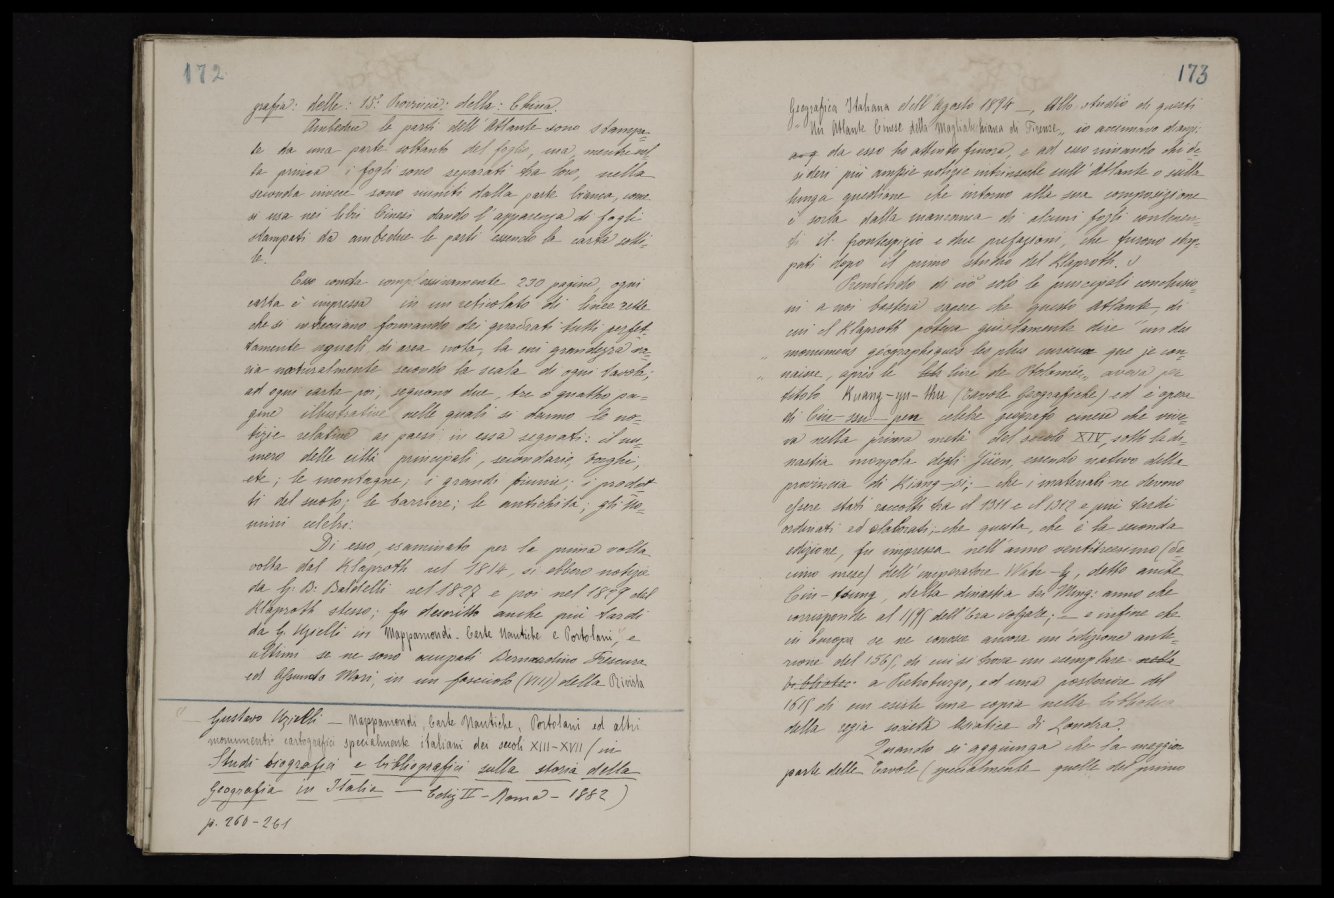 172
grafia: delle: 15: Provincie: della: China.
Ambedue le parti dell'Atlante sono stampa-
te da una parte soltanto del foglio, ma, mentre nel-
la prima i fogli sono separati tra loro, nella
seconda invece sono riuniti dalla parte bianca, come
si usa nei libri Cinesi dando l'apparenza di fogli
stampati da ambedue le parti essendo la carta sotti-
le.
Esso consta complessivamente 230 pagine, ogni
carta è impressa in un reticolato di linee rette
che si intrecciano formando dei quadrati tutti perfet-
tamente uguali, di area nota, la cui grandezza va-
ria naturalmente secondo la scala di ogni tavola;
ad ogni carta poi, seguono due, tre o quattro pa-
gine illustrative nelle quali si danno le no-
tizie relative ai paesi in essa segnati: il nu-
mero delle città principali, secondarie, borghi,
etc; le montagne; i grandi fiumi; i prodot-
ti del suolo; le barriere; le antichità; gli uo-
mini celebri.
Di esso, esaminato per la prima volta
volta dal Klaproth nel 1814, si ebbero notizie
da G. B. Baldelli nel 1827 e poi nel 1829 del
Klaproth stesso; fu descritto anche più tardi
da G. Uzielli in Mappamondi - Carte Nautiche e Portolani, e
ultimi se ne sono occupati Bernardino Frescura
ed Assunto Mori, in un fascicolo (VIII) della Rivista
Gustavo Uzielli — Mappamondi, Carte Nautiche, Portolani ed altri
monumenti cartografici specialmente italiani dei secoli XIII-XVII (in
Studi biografici e bibliografici sulla storia della
Geografia in Italia — Ediz II - Roma - 1882)
p. 260-261
173
Geografica Italiana dell'Agosto 1894 —. Allo studio di questi
"Un Atlante Cinese della Magliabechiana di Firenze", io accennavo dianzi:
da esso ho attinto finora, e ad esso rimando chi de-
sideri più ampie notizie intrinseche sull'Atlante o sulla
lunga questione che intorno alla sua composizione
è sorta dalla mancanza di alcuni fogli contenen-
ti il frontespizio e due prefazioni, che furono strap-
pati dopo il primo studio del Klaproth.
Prendendo di ciò solo le principali conclusio-
ni a noi basterà sapere che questo Atlante, di
cui il Klaproth poteva giustamente dire "un des
monumens géographiques les plus curieux que je con-
naisse, après le livre de Ptolémée", aveva per
titolo Kuang-yu-thu (Tavole Geografiche) ed è opera
di Ciu-ssu-pen celebre geografo cinese che vive-
va nella prima metà del secolo XIV, sotto la di-
nastia mongola degli Yüen, essendo nativo della
provincia di Kiang-si; — che i materiali ne devono
essere stati raccolti tra il 1311 e il 1312 e più tardi
ordinati ed elaborati; — che questa, che è la seconda
edizione, fu impressa nell'anno ventitreesimo (de-
cimo mese) dell'imperatore Wan-ly, detto anche
Cin-tsung, della dinastia dei Ming: anno che
corrisponde al 1595 dell'Era volgare; — e infine che
in Europa se ne conosce ancora un'edizione ante-
riore del 1561, di cui si trova un esemplare nella
bibliotec a Pietroburgo, ed una posteriore del
1615 di cui esiste una copia nella biblioteca
della regia società Asiatica di Londra.
Quando si aggiunga che la maggior
parte delle Tavole (specialmente quelle del primo